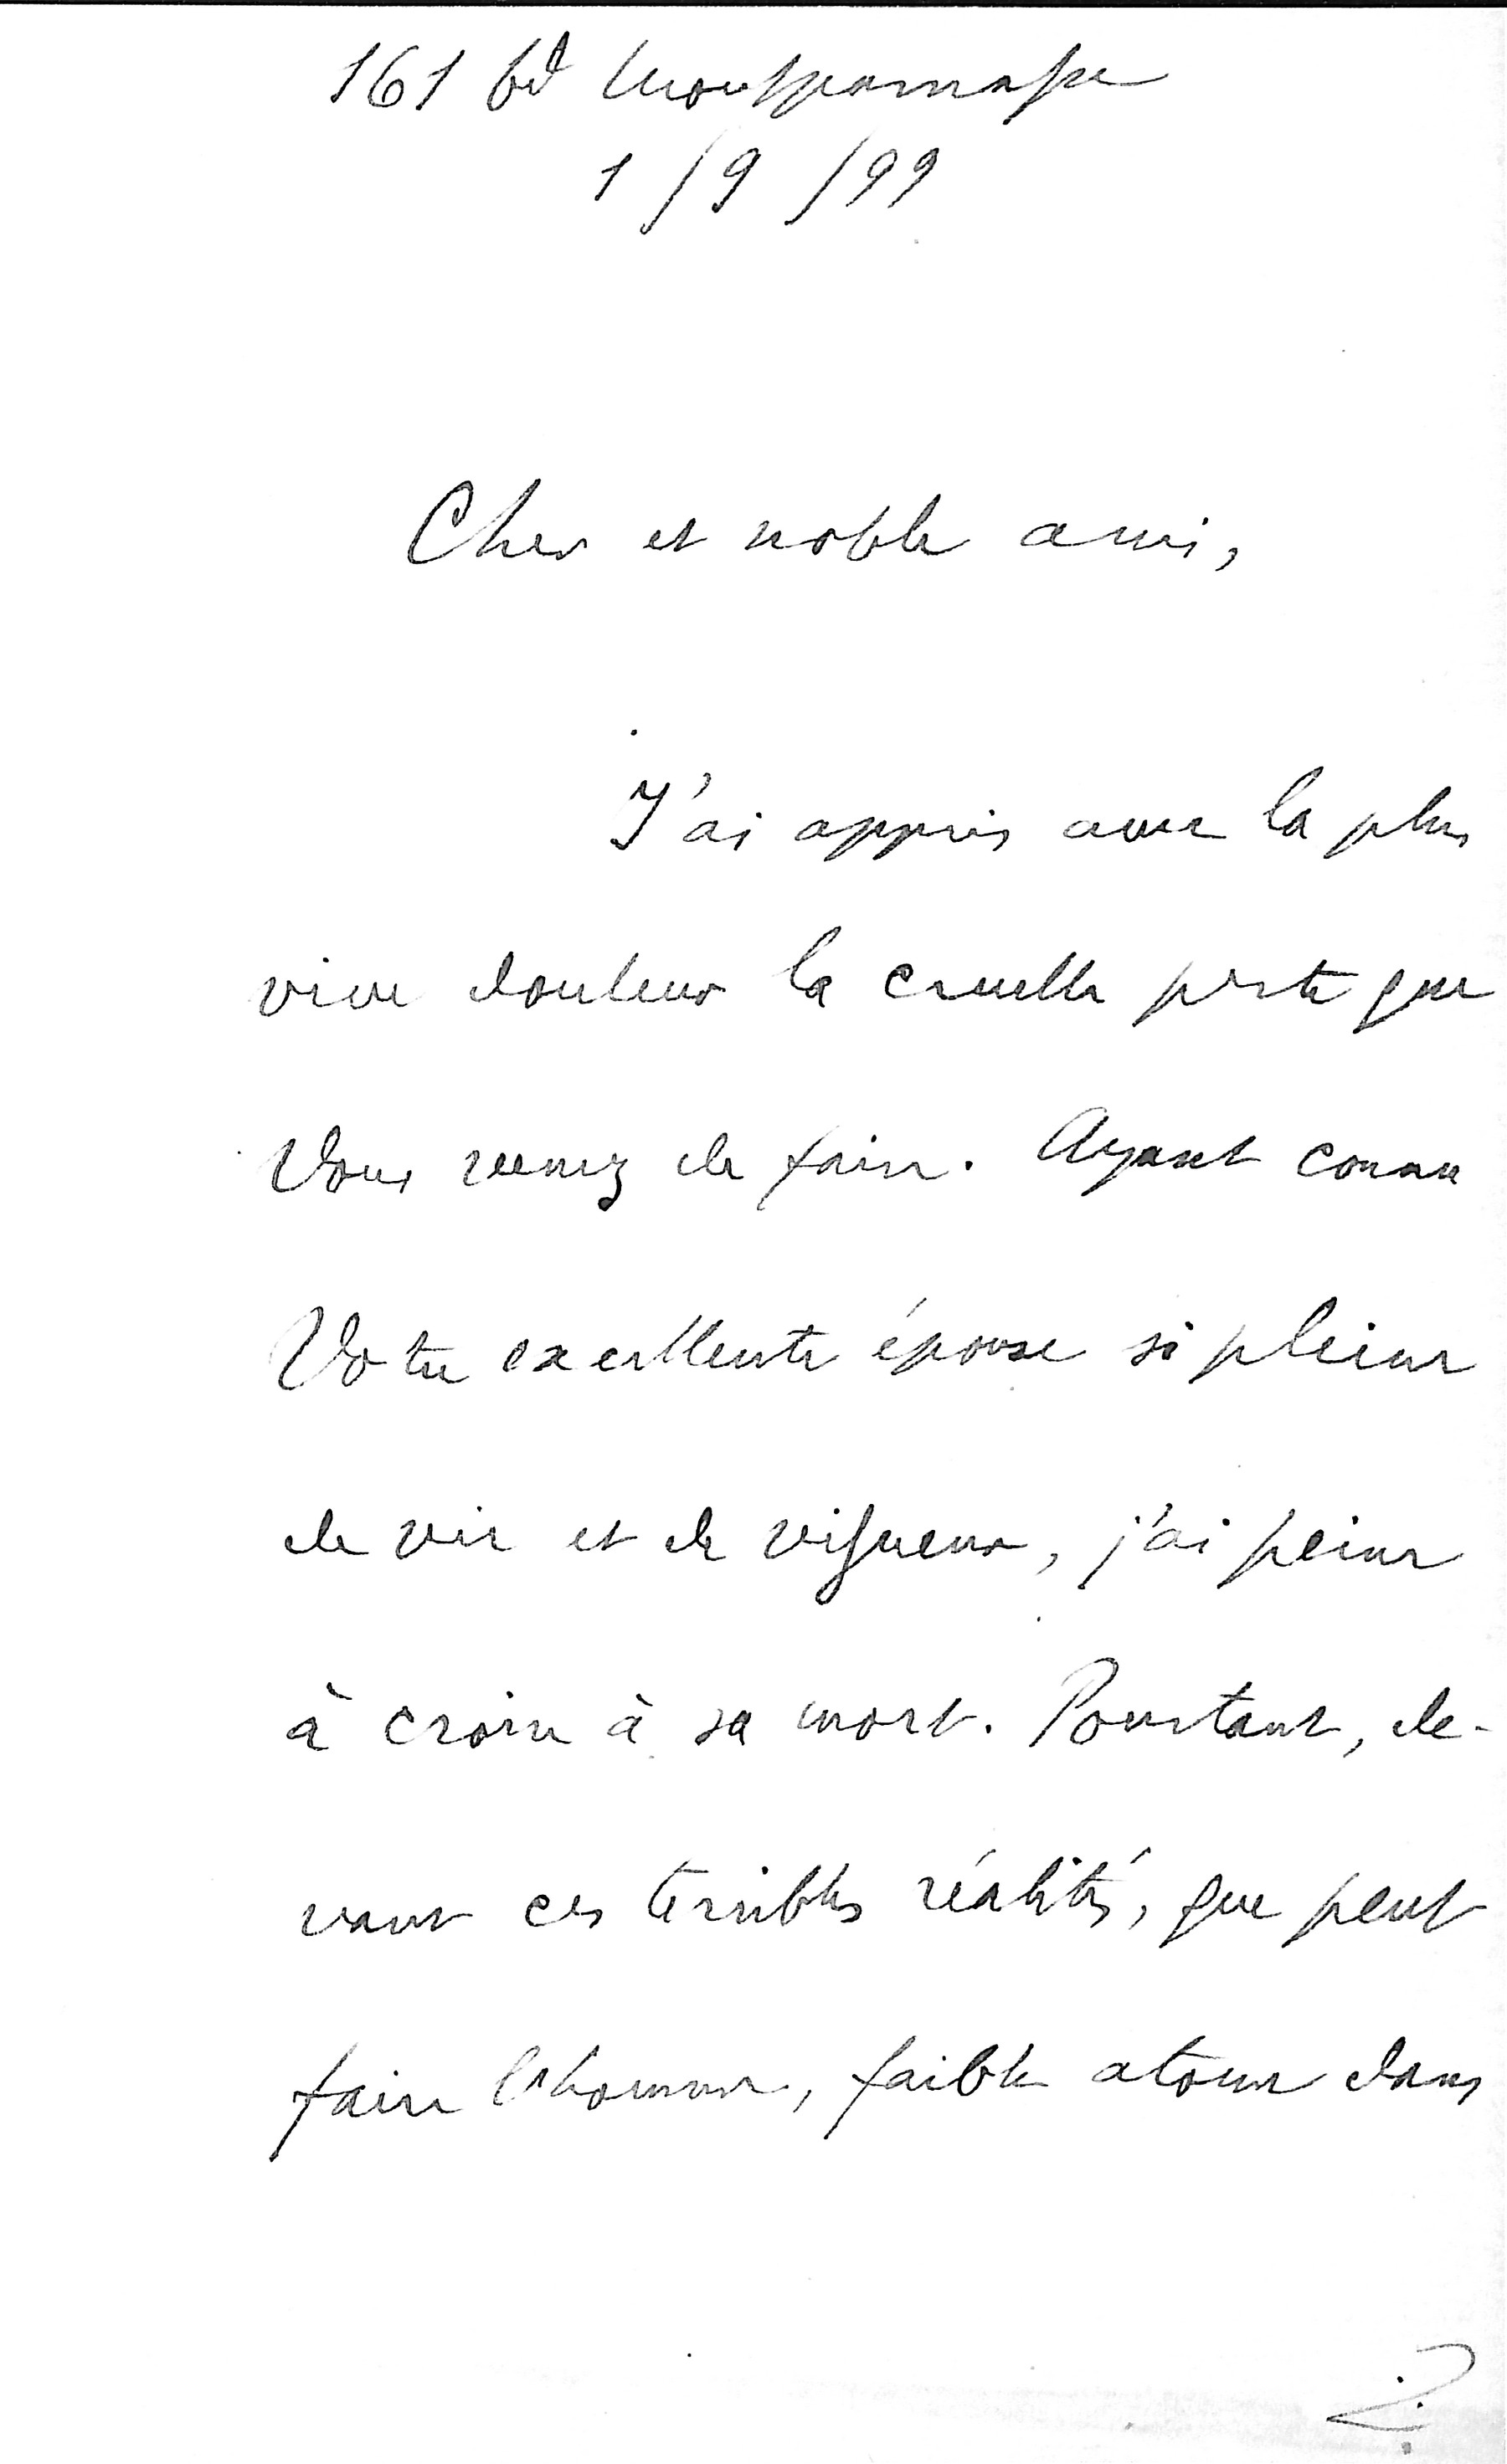 161 bd Montparnasse
1/9/99
Cher et noble ami,
J'ai appris avec la plus
vive douleur la cruelle perte que
Vous venez de faire. Ayant connu
Votre excellente épouse si pleine
de vie et de vigueur, j'ai peine
à croire à sa mort. Pourtant, de-
vant ces terribles réalités, que peut
faire l'homme, faible atome dans